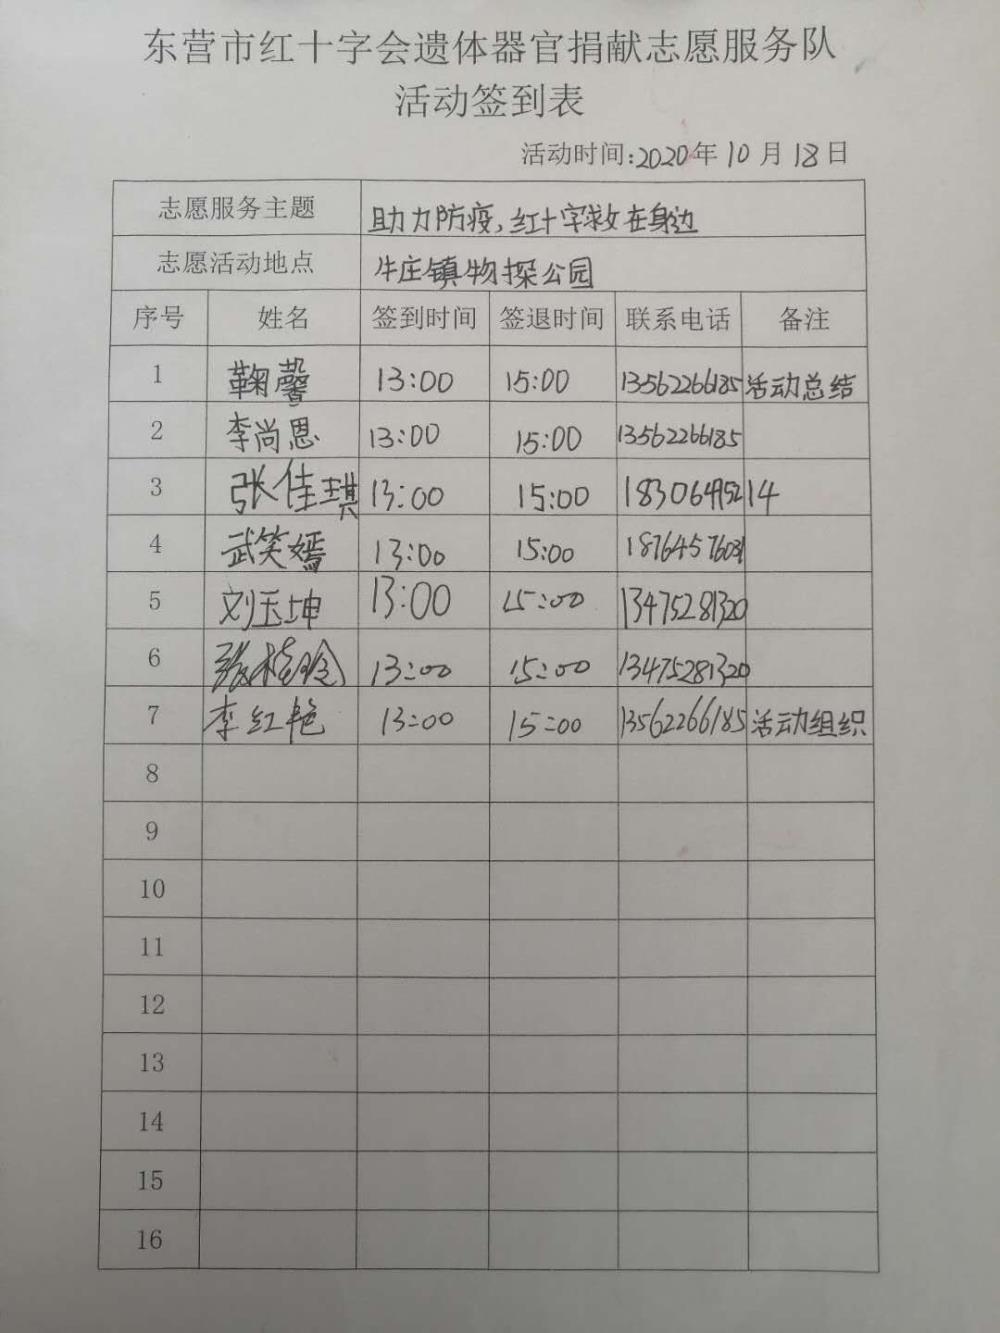 东营市红十字会遗体器官捐献志愿服务队
活动签到表
活动时间:2020年10月18日
志愿服务主题 助力防疫,红十字救在身边
志愿活动地点 牛庄镇物探公园
序号 姓名 签到时间 签退时间 联系电话 备注
1 鞠馨 13:00 15:00 13562266185 活动总结
2 李尚恩 13:00 15:00 13562266185
3 张佳琪 13:00 15:00 18306495214
4 武笑嫣 13:00 15:00 18764576031
5 刘玉坤 13:00 15:00 13475281320
6 13:00 15:00 13475281320
7 李红艳 13:00 15:00 13562266185 活动组织
8
9
10
11
12
13
14
15
16